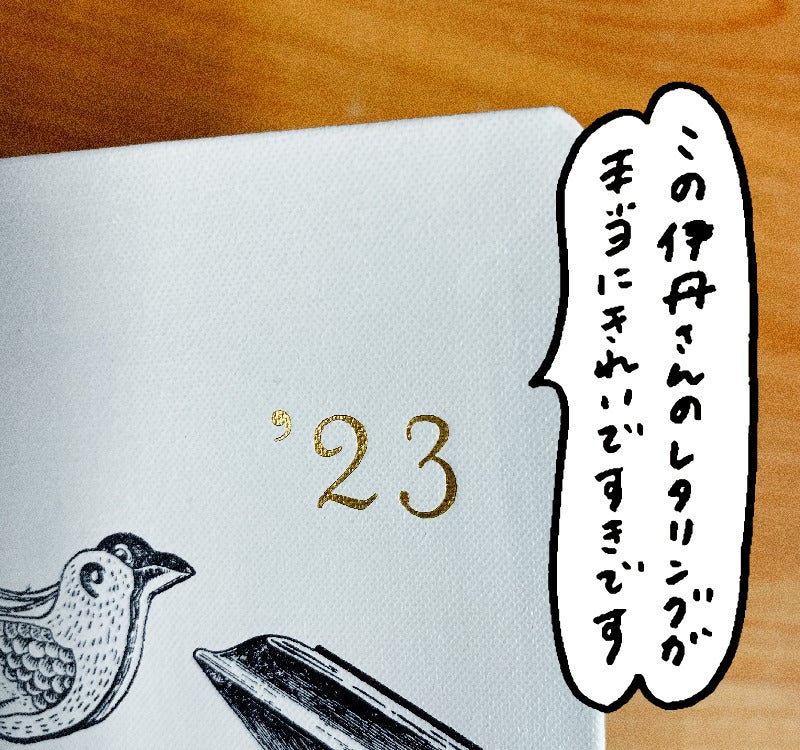 この伊丹さんのレタリングが
本当にきれいですきです
'23